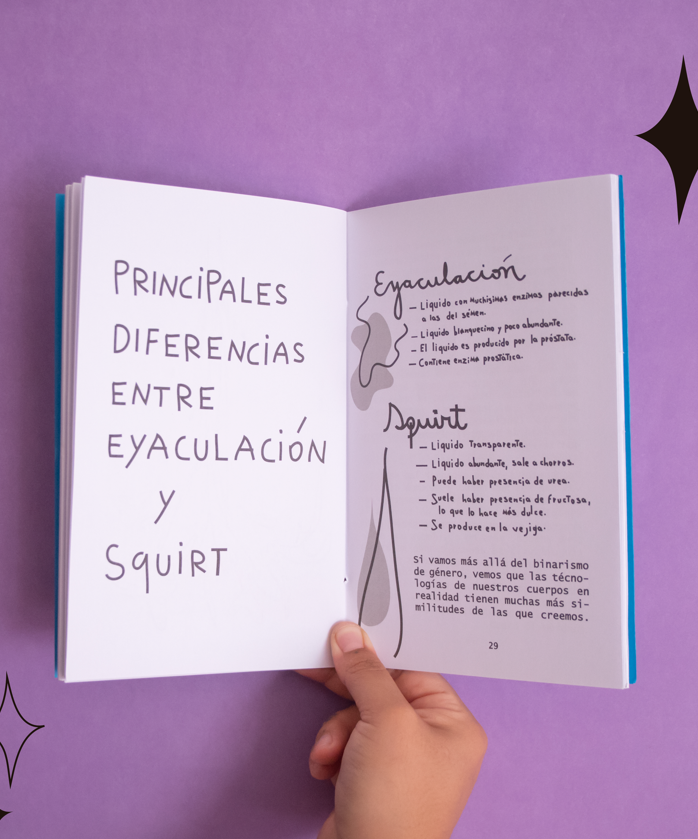 PRINCIPALES
DIFERENCIAS
ENTRE
EYACULACIÓN
y
SQUIRT
Eyaculación
— Líquido con muchísimas enzimas parecidas
a las del sémen.
— Líquido blanquecino y poco abundante.
— El líquido es producido por la próstata.
— Contiene enzima prostática.
Squirt
— Líquido Transparente.
— Líquido abundante, sale a chorros.
— Puede haber presencia de urea.
— Suele haber presencia de fructosa,
lo que lo hace más dulce.
— Se produce en la vejiga.
Si vamos más allá del binarismo
de género, vemos que las técno-
logías de nuestros cuerpos en
realidad tienen muchas más si-
militudes de las que creemos.
29